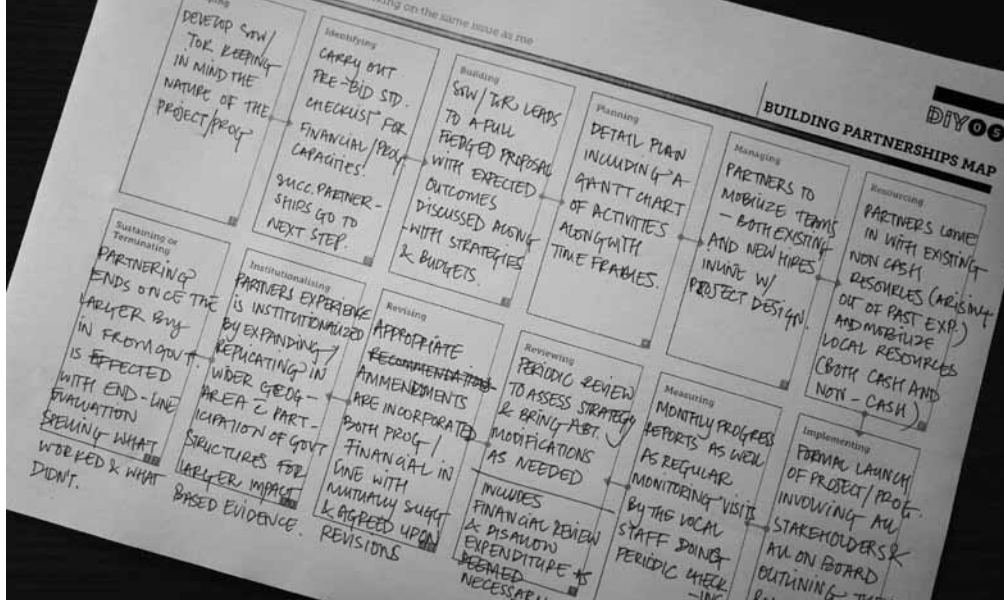 king on the same issue as me
BUILDING PARTNERSHIPS MAP
DIY05
DEVELOP SOW/
TOR KEEPING
IN MIND THE
NATURE OF THE
PROJECT/PROG
Identifying
CARRY OUT
PRE-BID STD.
CHECKLIST FOR
FINANCIAL/PROG
CAPACITIES.
SUCC. PARTNER-
SHIPS GO TO
NEXT STEP.
Building
SOW/TOR LEADS
TO A FULL
FLEDGED PROPOSAL
WITH EXPECTED
OUTCOMES
DISCUSSED ALONG
WITH STRATEGIES
& BUDGETS.
Planning
DETAIL PLAN
INCLUDING A
GANTT CHART
OF ACTIVITIES
ALONGWITH
TIME FRAMES.
Managing
PARTNERS TO
MOBILIZE TEAMS
- BOTH EXISTING
AND NEW HIRES
INLINE W/
PROJECT DESIGN.
Resourcing
PARTNERS COME
IN WITH EXISTING
NON CASH
RESOURCES (ARISING
OUT OF PAST EXP.)
AND MOBILIZE
LOCAL RESOURCES
(BOTH CASH AND
NON-CASH)
Sustaining or
Terminating
PARTNERING
ENDS ONCE THE
LARGER BUY
IN FROM GOVT.
IS EFFECTED
WITH END-LINE
EVALUATION
SPELLING WHAT
WORKED & WHAT
DIDN'T.
Institutionalising
PARTNERS EXPERIENCE
IS INSTITUTIONALIZED
BY EXPANDING/
REPLICATING IN
WIDER GEOG-
AREA C PART-
ICIPATION OF GOVT
STRUCTURES FOR
LARGER IMPACT
BASED EVIDENCE.
Revising
APPROPRIATE
RECOMMENDATIONS
AMMENDMENTS
ARE INCORPORATED
BOTH PROG/
FINANCIAL IN
LINE WITH
MUTUALLY SUGG
& AGREED UPON
REVISIONS
Reviewing
PERIODIC REVIEW
TO ASSESS STRATEGY
& BRING ABT.
MODIFICATIONS
AS NEEDED
INCLUDES
FINANCIAL REVIEW
& DISALLOW
EXPENDITURE IS
DEEMED
Measuring
MONTHLY PROGRESS
REPORTS AS WELL
AS REGULAR
MONITORING VISITS
BY THE LOCAL
STAFF DOING
PERIODIC CHECK
-ING
Implementing
FORMAL LAUNCH
OF PROJECT/PROG.
INVOLVING ALL
STAKEHOLDERS &
ALL ON BOARD
OUTLINING